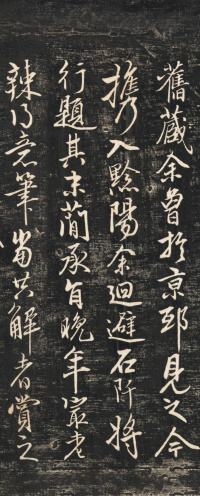 舊藏余曾於京邸見之今
攜入黔陽余迴避石阡將
行題其末簡承旨晚年最老
辣得意筆當共解者賞之